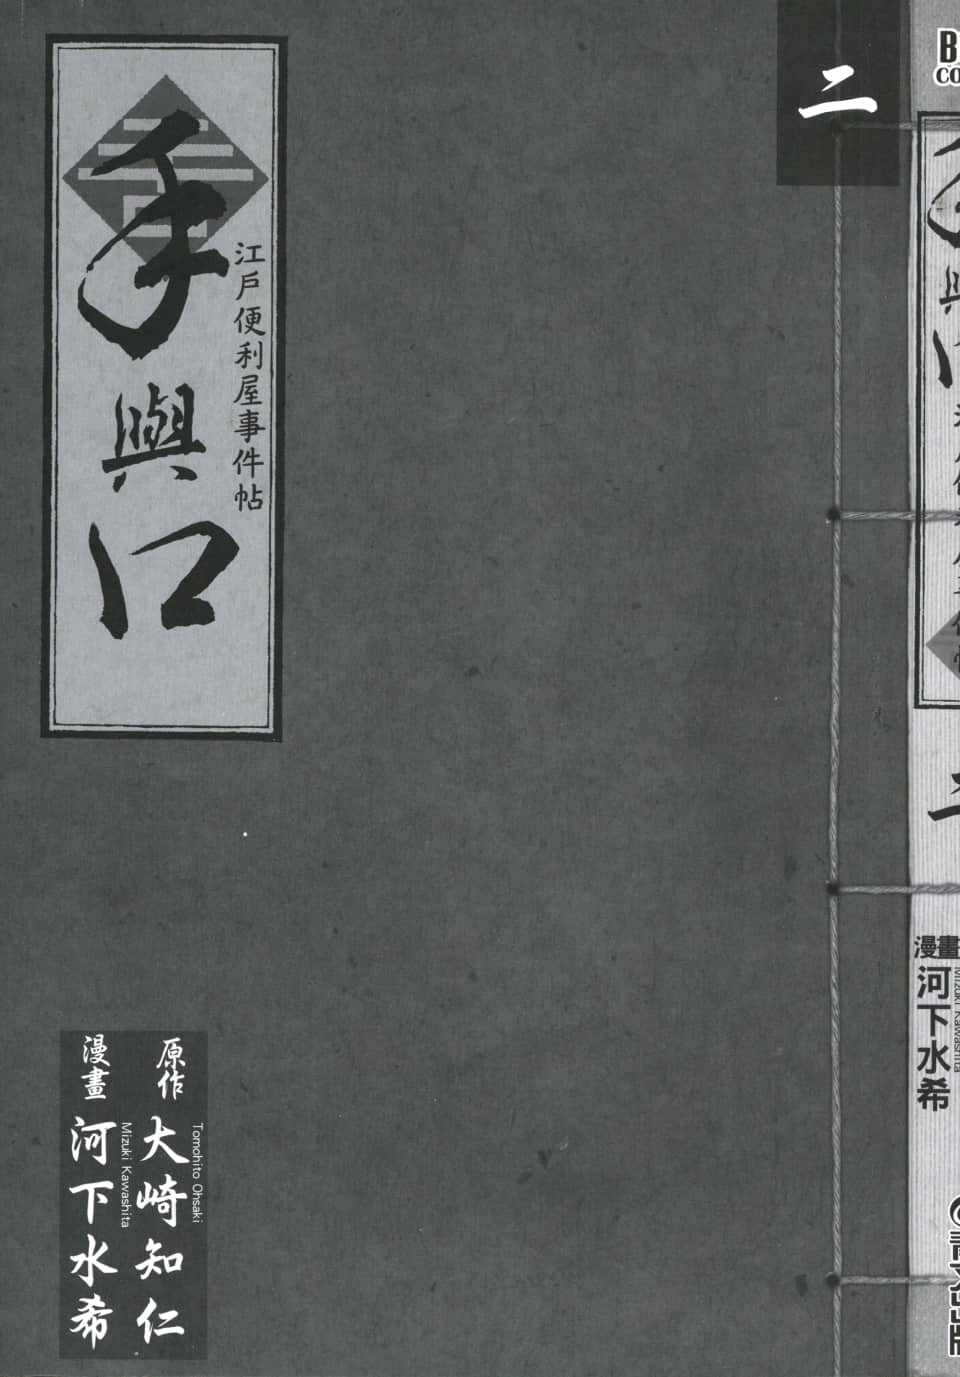 二
手與口
江戶便利屋事件帖
原作
大崎知仁
Tomohito Ohsaki
漫畫
河下水希
Mizuki Kawashita
漫畫
河下水希
Mizuki Kawashita
青文出版